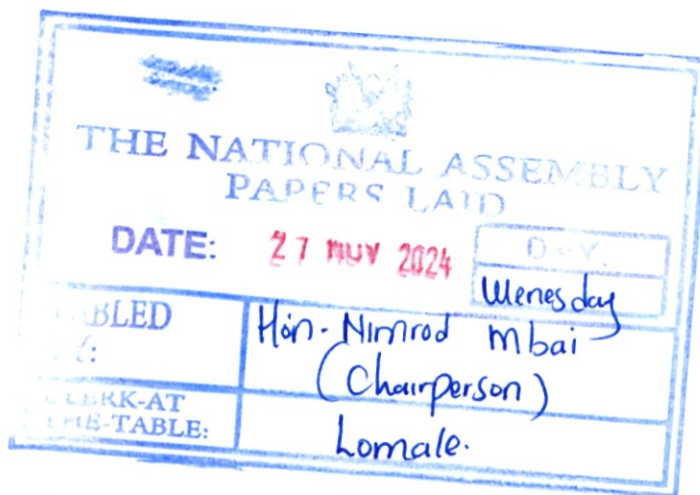 THE NATIONAL ASSEMBLY
PAPERS LAID
DATE: 27 NOV 2024
DAY.
Wenesday
TABLED
BY:
Hon. Nimrod Mbai
(Chairperson)
CLERK-AT
THE-TABLE:
Lomale.